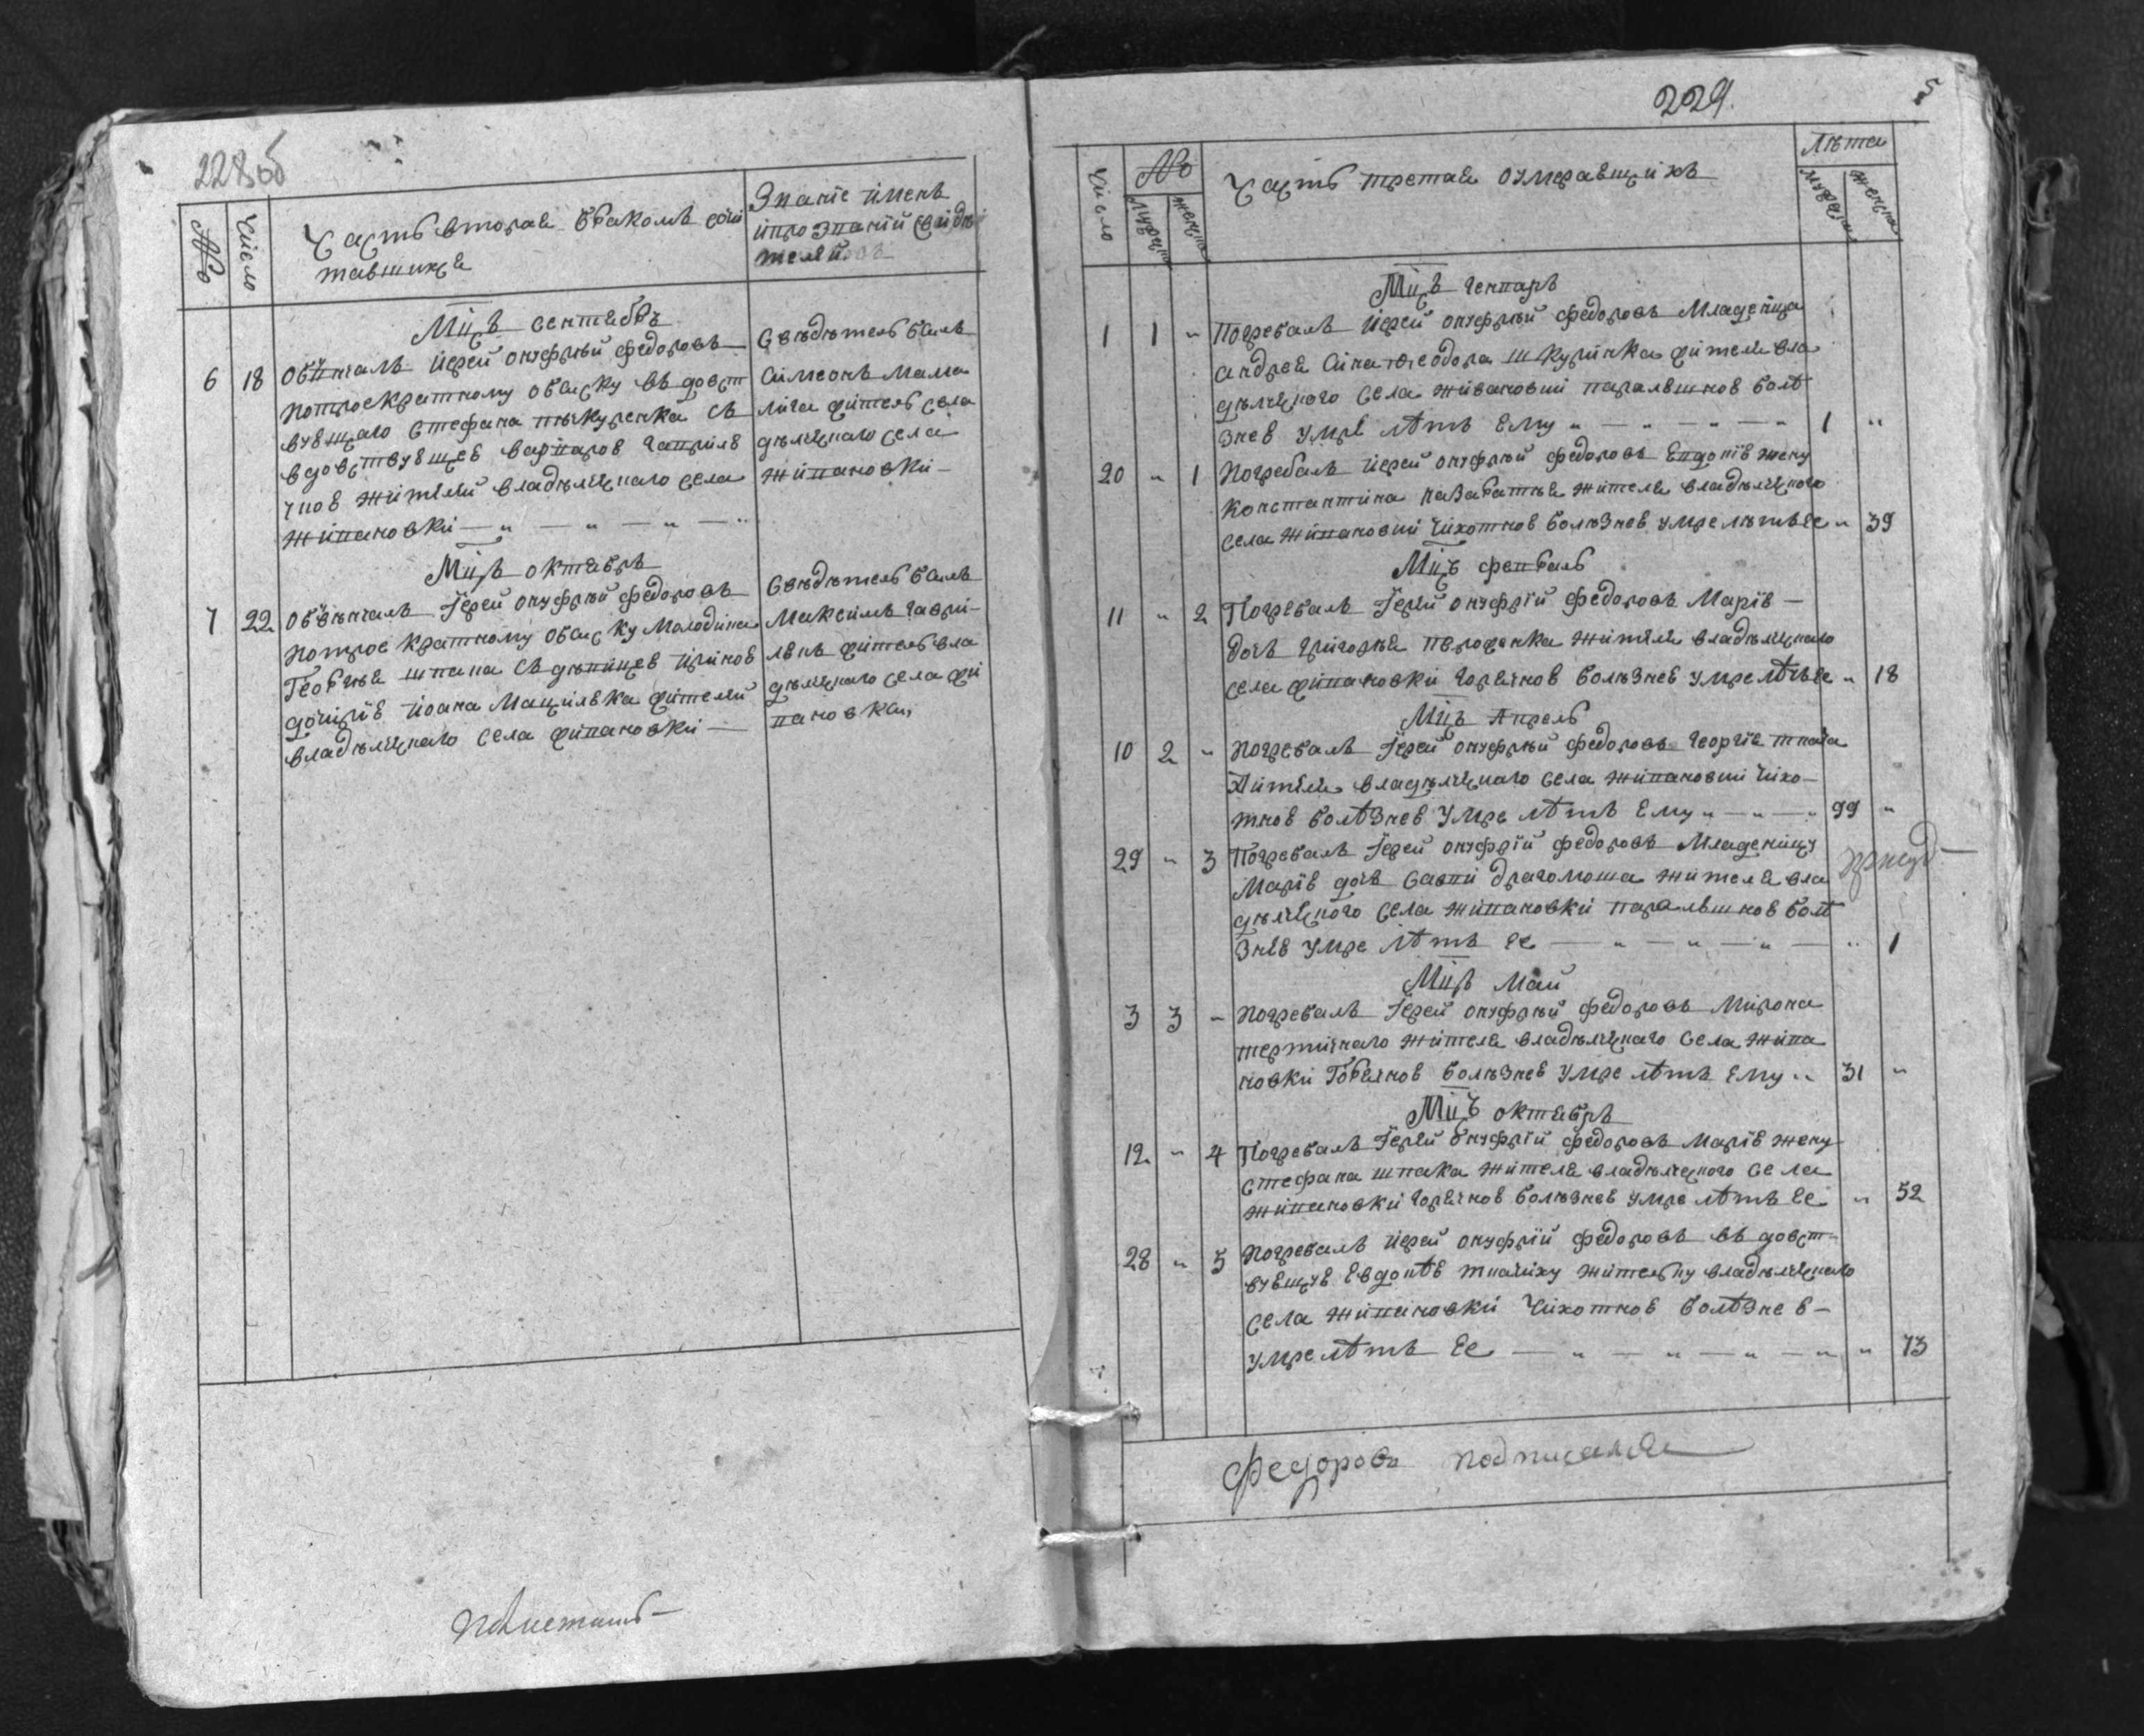 228об
№
Число
Часть вторая бракомъ сочи
тавшихся
Знаніе именъ
и прозваній свидѣ
телей
Мцъ сентябрь
6 18 Обвѣнчалъ Иерей онуфрый федоровъ
потроекратному обыску въ довст
вувщаго Стефана съ
вдовствувщев варваров
жителей владѣлческаго села
жипановки
Свѣдѣтель былъ
Симеонъ Мама
лига житель села
дѣлческаго села
жипановки
Мцъ октябръ
7 22 Обвѣнчалъ Їерей онуфрый федоровъ
потрое кратному обыску Молодика
Георгия шпака съ дѣвицев ириков
дочирїв иоана житeлей
владѣлческаго села жипановки
Свѣдѣтель былъ
Максимъ гаври-
житель вла
дѣлческаго села жи
пановки,
229.
5
Число
№
Часть третая оумеравшихъ
Лѣта
Мцъ генваръ
1 1 „ Погребалъ Иерей онуфрый федоровъ Младенца
андрея сина феодора жителя вла
дѣлческого села жипановки паралѣшнов болѣ
знев умре лѣтъ Ему „ — „ — „ — „ — 1 „
20 „ 1 Погребалъ Иерей онуфрый федоровъ Евдокїв жену
Константина жителя владѣлческого
села жипановки чихотнов болѣзнев умре лѣтъ Ее „ 39
Мцъ февраль
11 „ 2 Погребалъ Їерей онуфрїй федоровъ Марїв —
дочъ григория жителя владѣлческаго
села жипановки горячнов болѣзнев умре лѣтъ Ее „ 18
Мцъ Апрель
10 2 „ Погребалъ Їерей онуфрый федоровъ Георгїя ткача
Жителя владѣлческаго села жипановки чихо-
тнов болѣзнев умре лѣтъ Ему „ — „ — „ 99 „
29 „ 3 Погребалъ Їерей онуфрїй федоровъ Младеницу
Марїв дочъ Савви драгомоша жителя вла
дѣлческого села жипановки паралѣшнов болѣ
знев умре лѣтъ Ее — „ — „ — „ — „ 1
Мцъ Май
3 3 „ Погребалъ Їерей онуфрый федоровъ Мирона
тертичнаго жителя владѣлческаго села жипа
новки горячнов болѣзнев умре лѣтъ Ему „ 31 „
Мцъ октябръ
12 „ 4 Погребалъ Їерей онуфрїй федоровъ Марїв жену
Стефана шпака жителя владѣлческого села
жипановки горячнов болѣзнев умре лѣтъ Ее „ 52
28 „ 5 Погребалъ Иерей онуфрїй федоровъ въ довст-
вувщув Евдокїв ткачиху жителку владѣлческаго
села жипановки чихотнов болѣзнев —
умре лѣтъ Ее — „ — „ — „ — „ „ 73
Федоровъ подписался